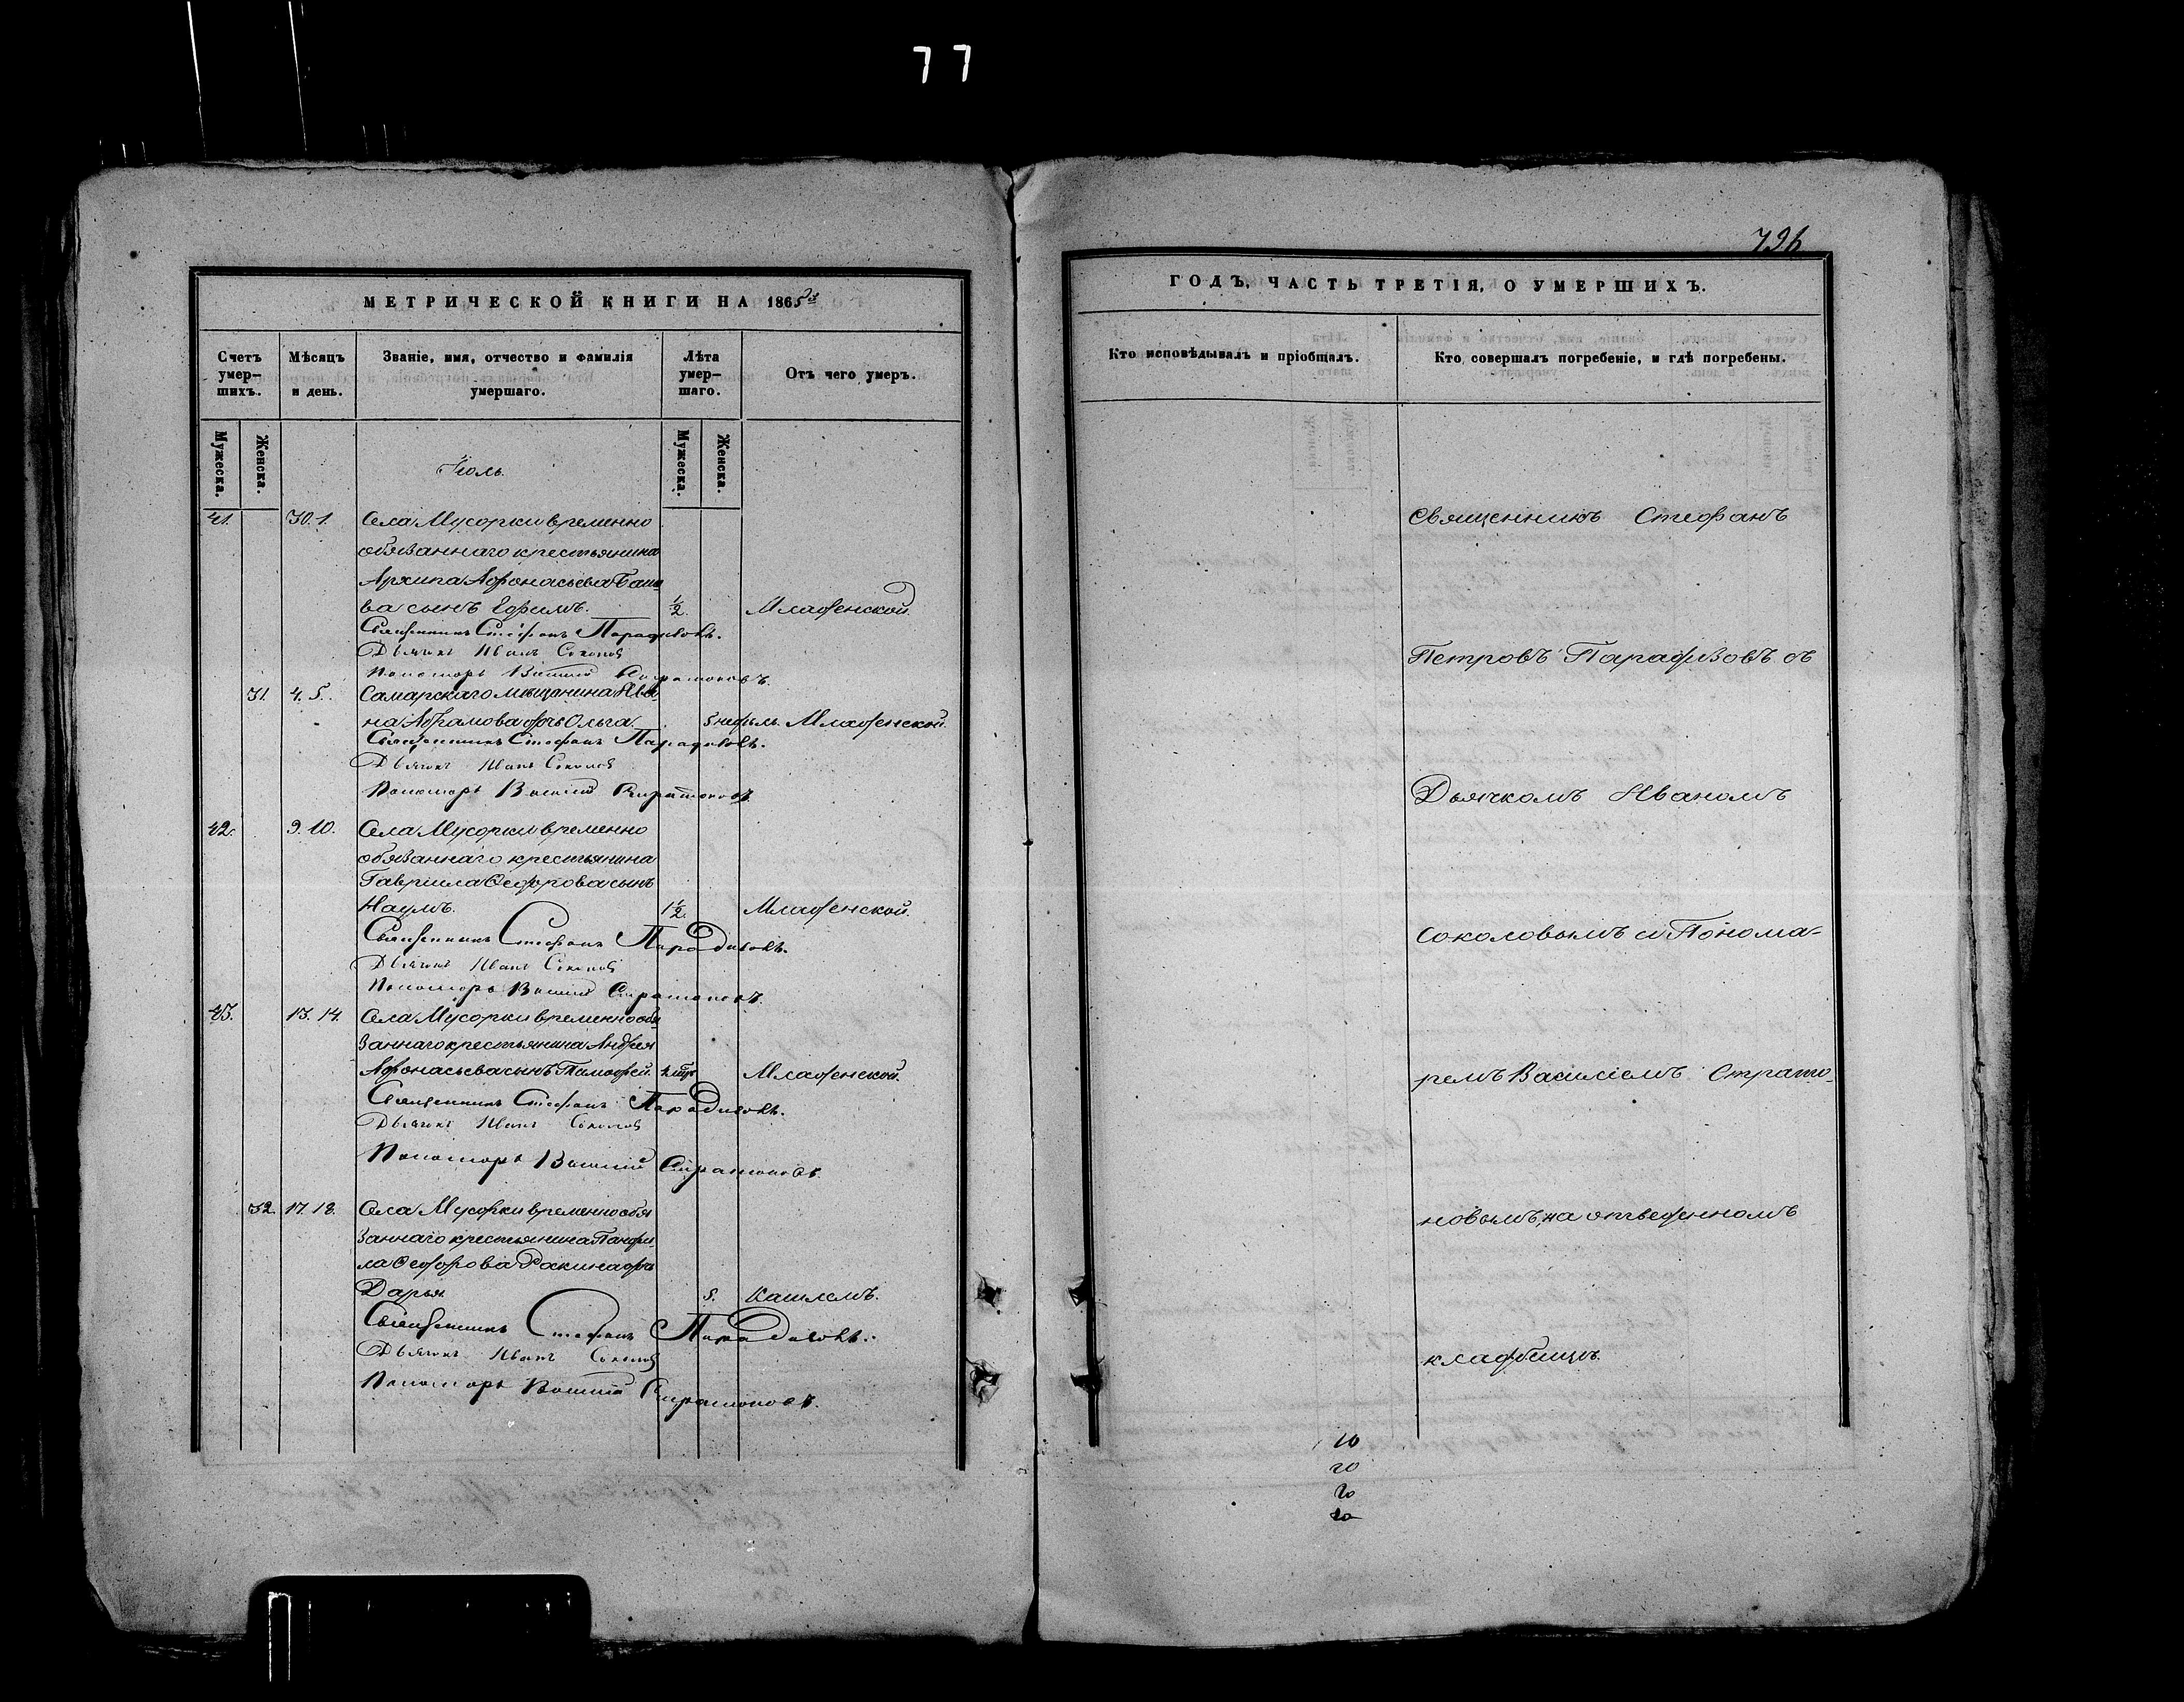 77
МЕТРИЧЕСКОЙ КНИГИ НА 1865й
Счетъ умер-шихъ.
Мѣсяцъ и день.
Званіе, имя, отчество и фамилія умершаго.
Лѣта умер-шаго.
Отъ чего умеръ.
Мужеска.
Женска.
Мужеска.
Женска.
Іюль.
41. 30.1. Села Мусорки временно
обязаннаго крестьянина
Архипа Афонасьева
ва сынъ Ефимъ. 1/2 Младенской.
Священникъ Стефанъ Парадизовъ.
Дьячокъ Иванъ Соколов
Пономарь Василий Стратоновъ.
31. 4. 5. Самарскаго мещанина Ива
на Абрамова дочь Ольга. 5 недѣль. Младенской.
Священникъ Стефанъ Парадизовъ.
Дьячокъ Иванъ Соколов
Пономарь Василий Стратоновъ
42. 9. 10. Села Мусорки временно
обязаннаго крестьянина
Гавриила Федорова сынъ
Наумъ. 1 1/2. Младенской.
Священникъ Стефанъ Парадизовъ.
Дьячокъ Иванъ Соколов
Пономарь Василий Стратоновъ.
43. 13. 14. Села Мусорки временно обя
заннаго крестьянина Андрея
Афонасьева сынъ Тимофей. Младенской.
Священникъ Стефанъ Парадизовъ.
Дьячокъ Иванъ Соколов
Пономарь Василий Стратоновъ.
32. 17. 18. Села Мусорки временно обя
заннаго крестьянина Панфи
ла Федорова Ракина дочь
Дарья 5. Кашлемъ.
Священникъ Стефанъ Парадизовъ.
Дьячокъ Иванъ Соколов
Пономарь Василий Стратоновъ.
796
ГОДЪ, ЧАСТЬ ТРЕТІЯ, О УМЕРШИХЪ.
Кто исповѣдывалъ и пріобщалъ.
Кто совершалъ погребеніе, и гдѣ погребены.
Священникъ Стефанъ
Петровъ Парадизовъ съ
Дьячкомъ Иваномъ
Соколовымъ и Понома-
ремъ Василіемъ Страто-
новымъ, на отведенномъ
кладбищѣ.
10
20
20
20